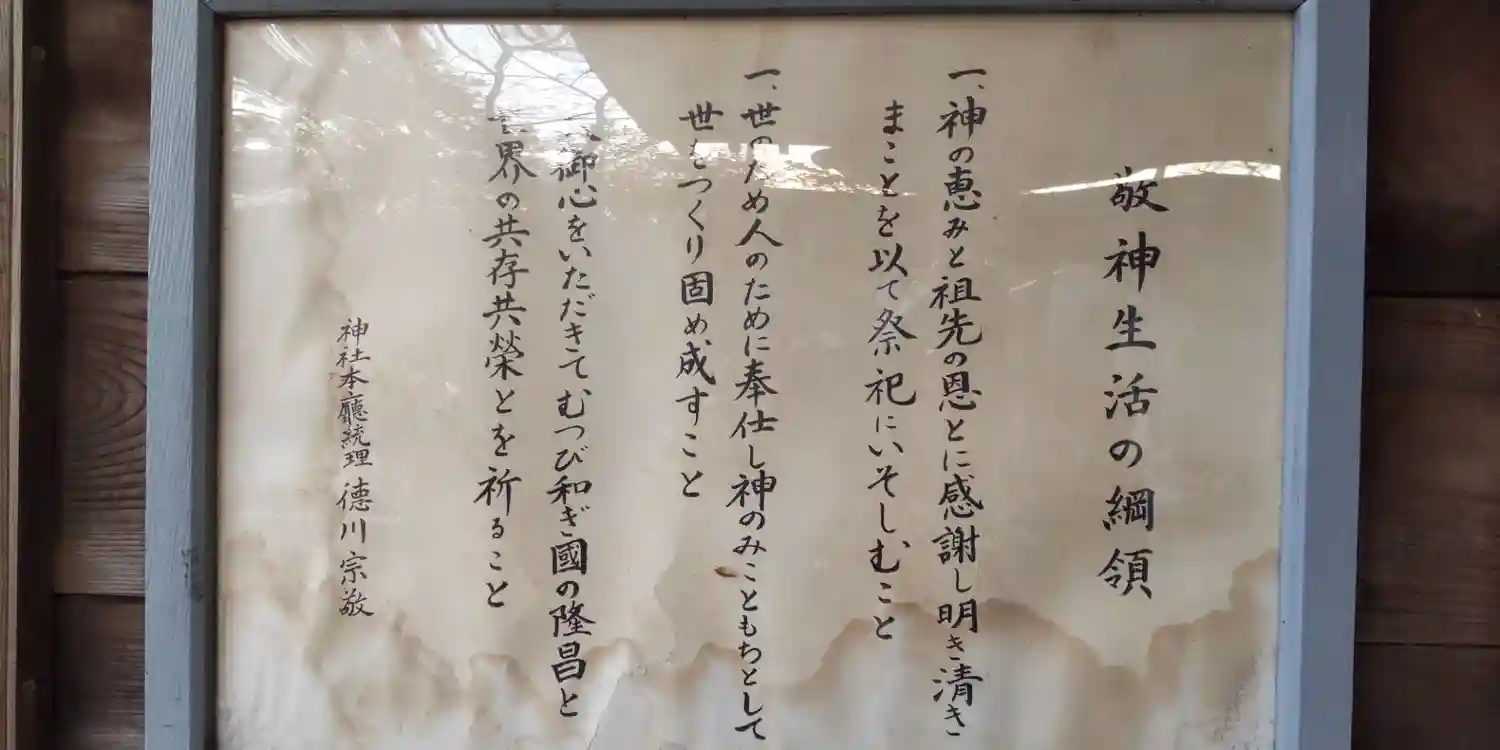 敬神生活の綱領
一、神の恵みと祖先の恩とに感謝し明き清き
まことを以て祭祀にいそしむこと
一、世のため人のために奉仕し神のみこともちとして
世をつくり固め成すこと
御心をいただきてむつび和ぎ國の隆昌と
世界の共存共榮とを祈ること
神社本廳統理 德川宗敬